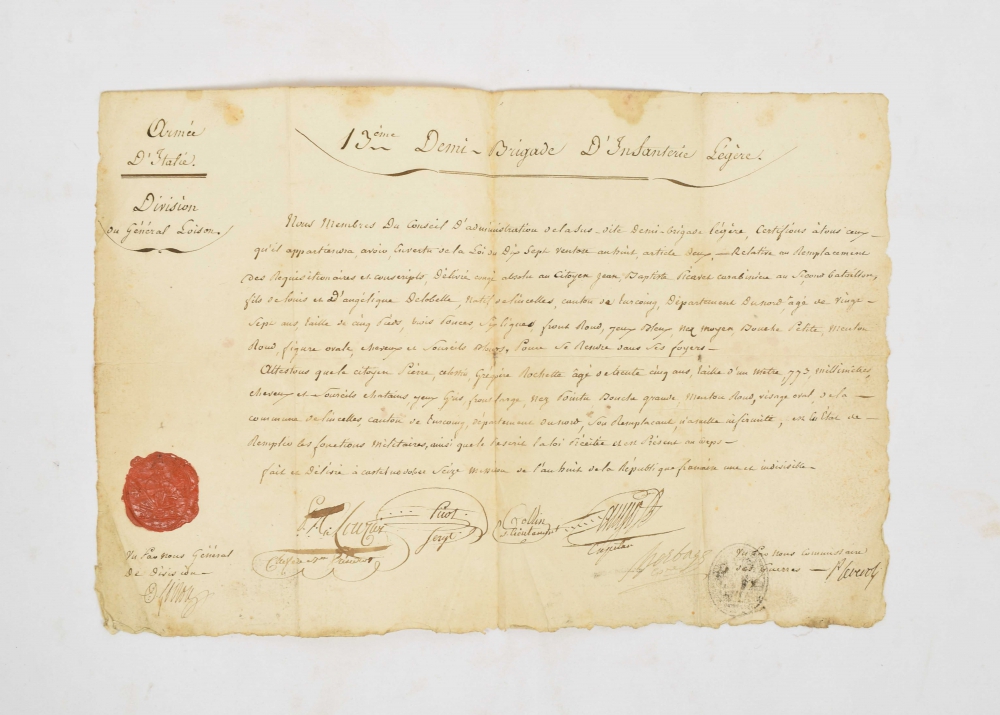 Armée
D'Italie.
Division
du Général Loison.
13ème Demi-Brigade D'Infanterie Légère.
Nous Membres Du Conseil D'administration de la sus-dite demi-brigade légère, Certifions à tous ceux-
qu'il appartiendra avoir, En vertu de la Loi du Dix Sept ventose an huit, article deux, - Relative au Remplacement
Des Requisitionaires et conscripts, Délivré congé absolu au Citoyen Jean Baptiste carabinier au Second Bataillon,
fils de Louis et D'angélique Delobelle, Natif de Lincelles, canton de Turcoing, Département Du nord, agé de Vingt-
Sept ans, taille de cinq Pieds, trois Pouces, Six lignes, front Rond, yeux Bleux, Nez moyen Bouche Petite, Menton
Rond, figure ovale, cheveux et Sourcils Pour Se Rendre dans Ses foyers -
Attestons que le citoyen Pierre, Grégoire Rochette agé de trente cinq ans, taille d'un mètre, 773, millimètres,
cheveux et Sourcils chatains yeux Gris, front large, nez Pointu Bouche grande, Menton Rond, visage oval, de la -
commune de Lincelles, canton de Turcoing, département du nord, Son Remplacant n'a nulle infirmité, est En Etat de -
Remplir les fonctions Militaires, ainsi que le Prescrit la loi Précitée et est Présent au corps -
fait et Délivré à Seize Messidor de l'an huit de la République francaise une et indivisible -
Picot
Sergt
Collin
S. Lieutenant
Capitaine
Vu Par nous Général
De Division -
Vu Par nous commissaire
des Guerres -